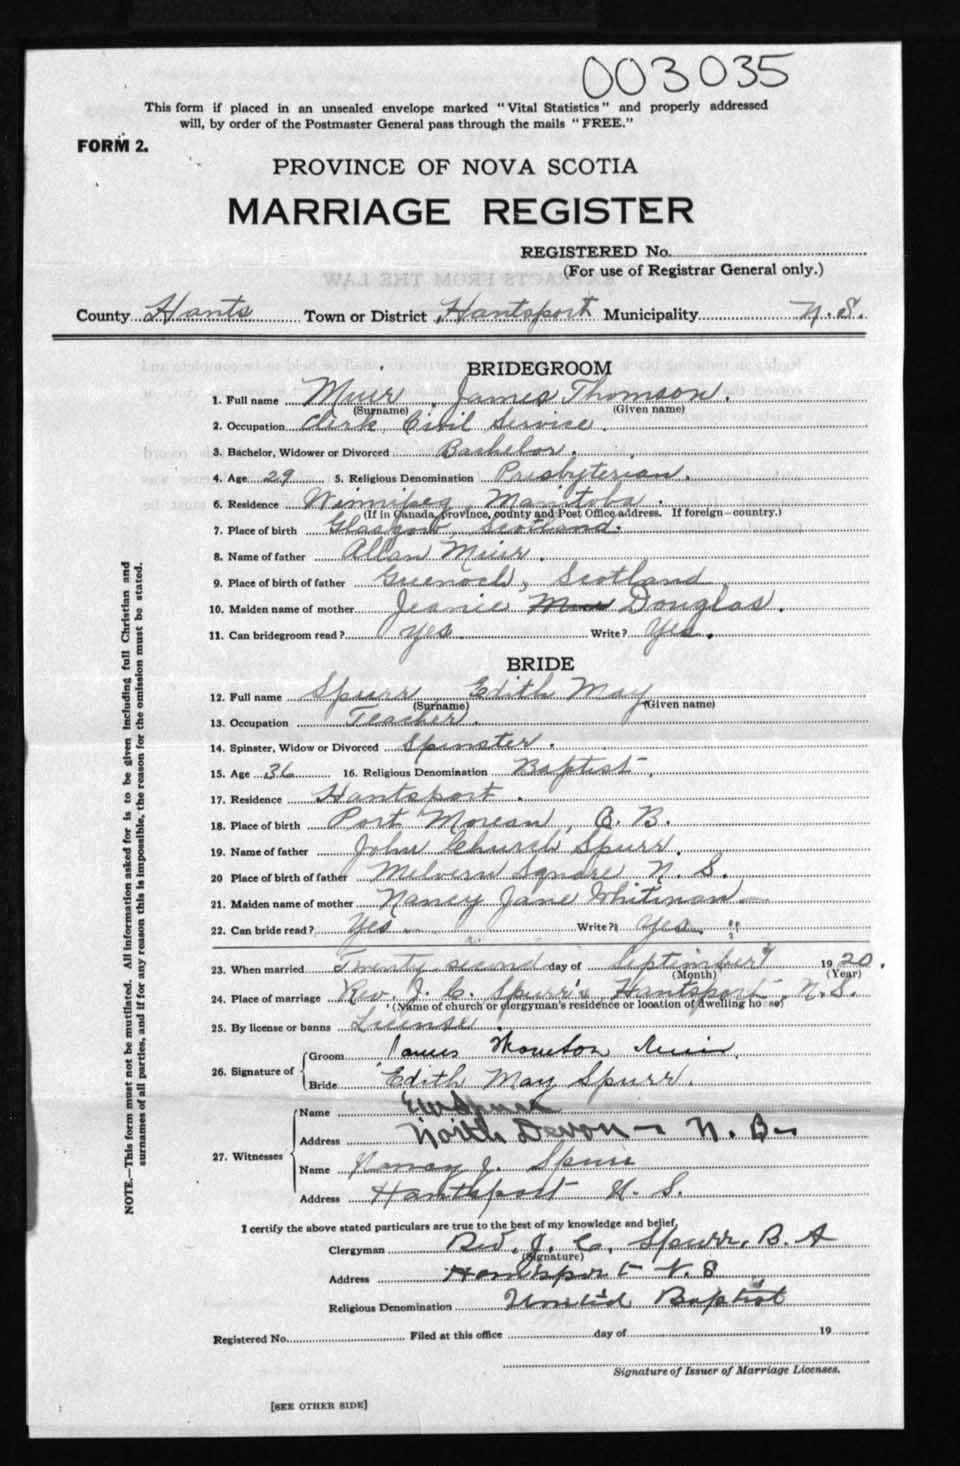 003035
This form if placed in an unsealed envelope marked "Vital Statistics" and properly addressed
will, by order of the Postmaster General pass through the mails "FREE."
FORM 2.
PROVINCE OF NOVA SCOTIA
MARRIAGE REGISTER
REGISTERED No.
(For use of Registrar General only.)
County Hants Town or District Hantsport Municipality N.S.
BRIDEGROOM
1. Full name Muir, James Thomson.
(Surname) (Given name)
2. Occupation Clerk, Civil Service.
3. Bachelor, Widower or Divorced Bachelor.
4. Age 29 5. Religious Denomination Presbyterian.
6. Residence Winnipeg, Manitoba.
(If in Canada, province, county and Post Office address. If foreign—country.)
7. Place of birth Glasgow, Scotland.
8. Name of father Allan Muir.
9. Place of birth of father Guenock, Scotland
10. Maiden name of mother Jeanie Douglas.
11. Can bridegroom read? yes. Write? Yes.
BRIDE
12. Full name Spurr Edith May
(Surname) (Given name)
13. Occupation Teacher.
14. Spinster, Widow or Divorced Spinster.
15. Age 36 16. Religious Denomination Baptist.
17. Residence Hantsport.
18. Place of birth Port Morean, C. B.
19. Name of father John Church Spurr.
20 Place of birth of father Melvern Square N. S.
21. Maiden name of mother Nancy Jane Whitman
22. Can bride read? Yes Write? Yes.
23. When married Twenty second day of September 1920.
(Month) (Year)
24. Place of marriage Rev. J. C. Spurr's Hantsport, N.S.
(Name of church or clergyman's residence or location of dwelling house)
25. By license or banns License.
26. Signature of Groom James Thomson Muir.
Bride Edith May Spurr.
27. Witnesses Name Spurr
Address North Devon – N. B–
Name Nancy J. Spurr
Address Hantsport N. S.
I certify the above stated particulars are true to the best of my knowledge and belief,
Clergyman Rev. J. C. Spurr, B. A
(Signature)
Address Hantsport N. S
Religious Denomination United Baptist
Registered No. Filed at this office day of 19
Signature of Issuer of Marriage Licenses.
[SEE OTHER SIDE]
NOTE.—This form must not be mutilated. All information asked for is to be given including full Christian and
surnames of all parties, and if for any reason this is impossible, the reason for the omission must be stated.